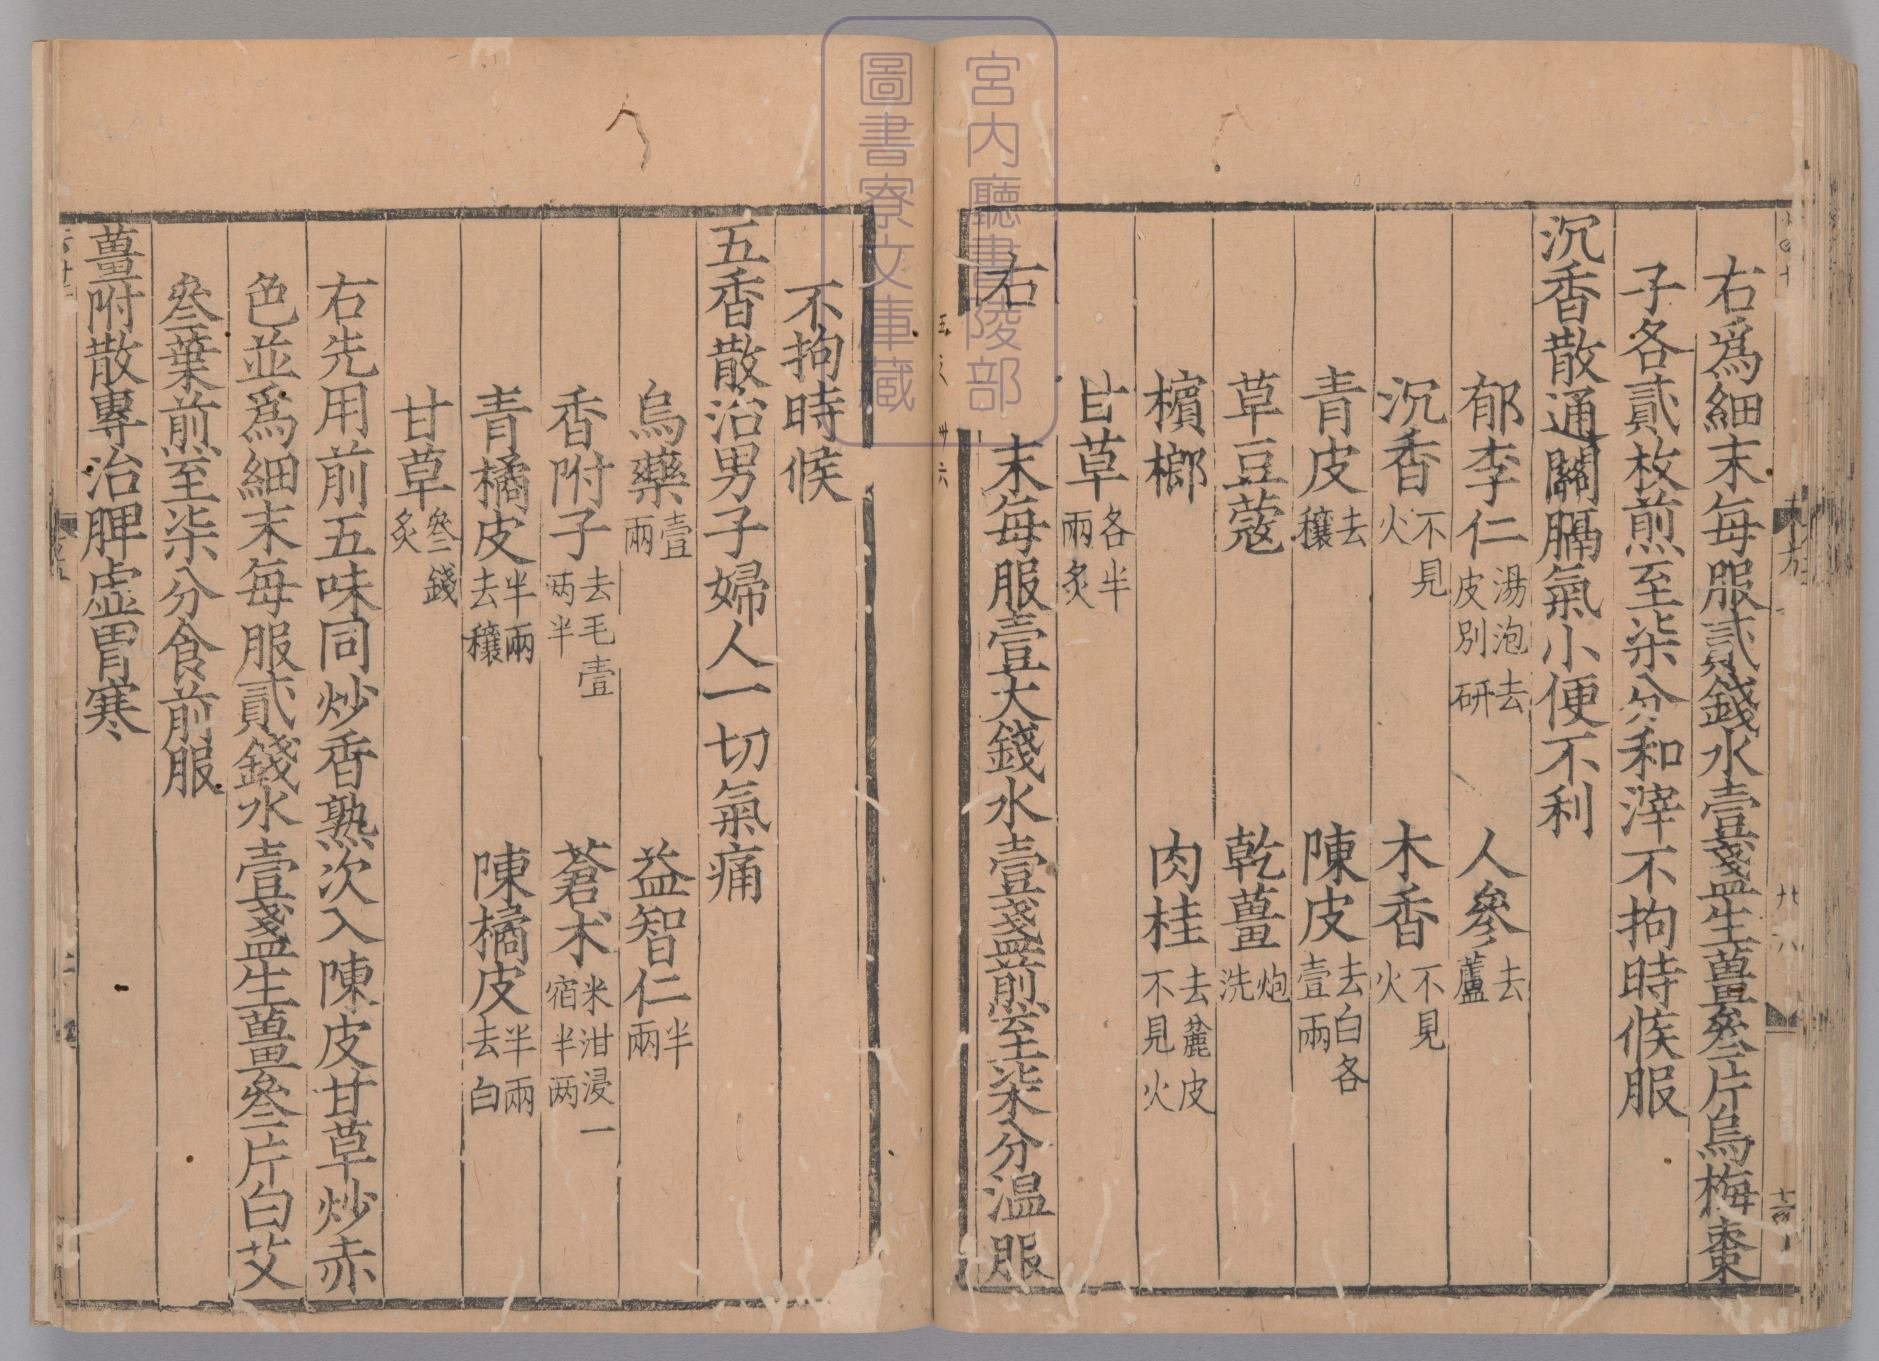 右爲細末每服貳錢水壹盞生薑叄片烏梅棗
子各貳枚煎至柒分和滓不拘時候服
沉香散通關膈氣小便不利
郁李仁湯泡去皮別研 人參去蘆
沉香不見火 木香不見火
青皮去穰 陳皮去白各壹兩
草豆蔻 乾薑炮洗
檳榔 肉桂去麄皮不見火
甘草各半兩炙
右 末每服壹大錢水壹盞煎至柒分温服
不拘時候
五香散治男子婦人一切氣痛
烏藥壹兩 益智仁半兩
香附子去毛壹两半 蒼朮米泔浸一宿半两
青橘皮半兩去穰 陳橘皮半兩去白
甘草叄錢炙
右先用前五味同炒香熟次入陳皮甘草炒赤
色並爲細末每服貳錢水壹盞生薑叄片白艾
叄葉煎至柒分食前服
薑附散專治脾虛胃寒
宮内廳書陵部
圖書寮文庫蔵